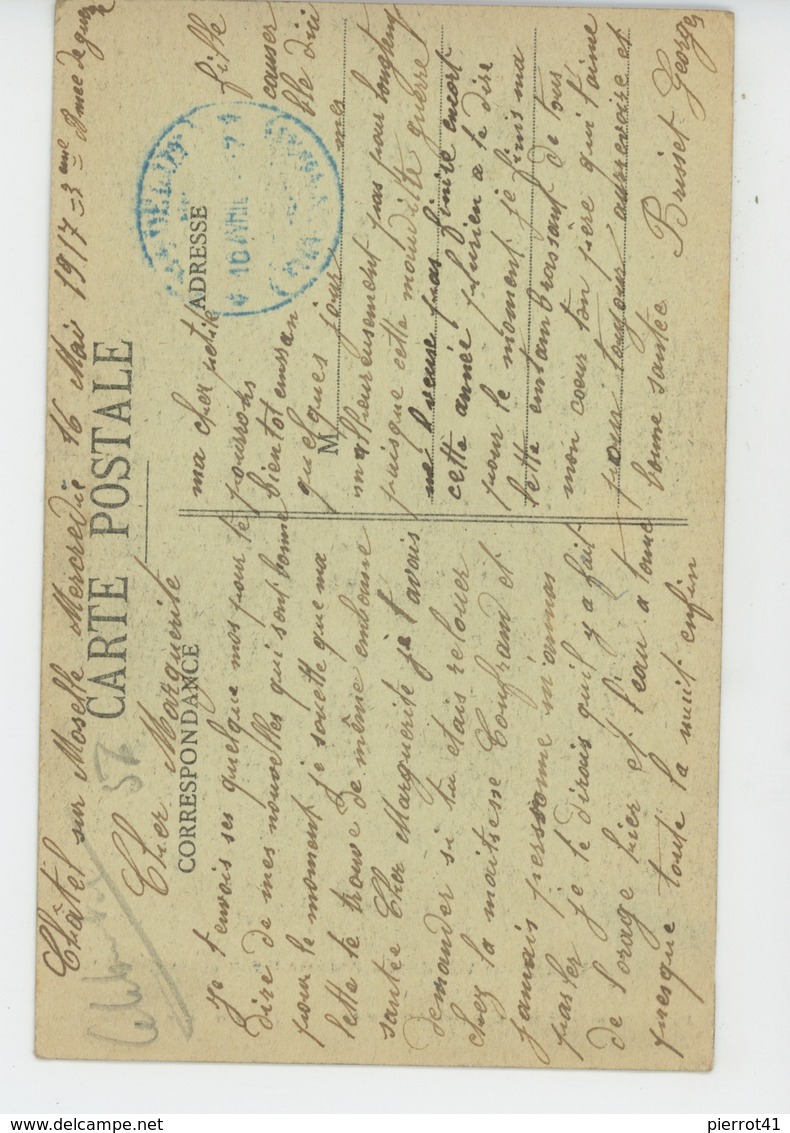 Châtel sur Moselle Mercredie 16 Mai 1917 = 3eme année de guerre
CARTE POSTALE
CORRESPONDANCE
ADRESSE
M
Cher Marguerite
Je t'envois ses quelque mos pour te
dire de mes nouvelles qui sont bonne
pour le moment je souette que ma
lette te trouve de même enbonne
santée Cher Marguerite je t'avais
demander si tu étais relouer
chez la maitresse Coufrand et
jamais personne m'annas
parler je te dirais quil y a fait
de l'orage hier et l'eau a tonne
presque toute la nuit enfin
ma cher petite fille
te pourrons causer
bientot enssan ble dici
quelques jour mes
malheureusement pas pour longtemp
puisque cette maudite guerre
ne veuse pas finire encort
cette année plusrien a te dire
pour le moment je finis ma
lette entambrassant de tous
mon coeur ton père qui t'aime
pour toujour aurrevoire et
bonne santée Brisset Georges
10 AVRIL
pierrot41
delcampe.net